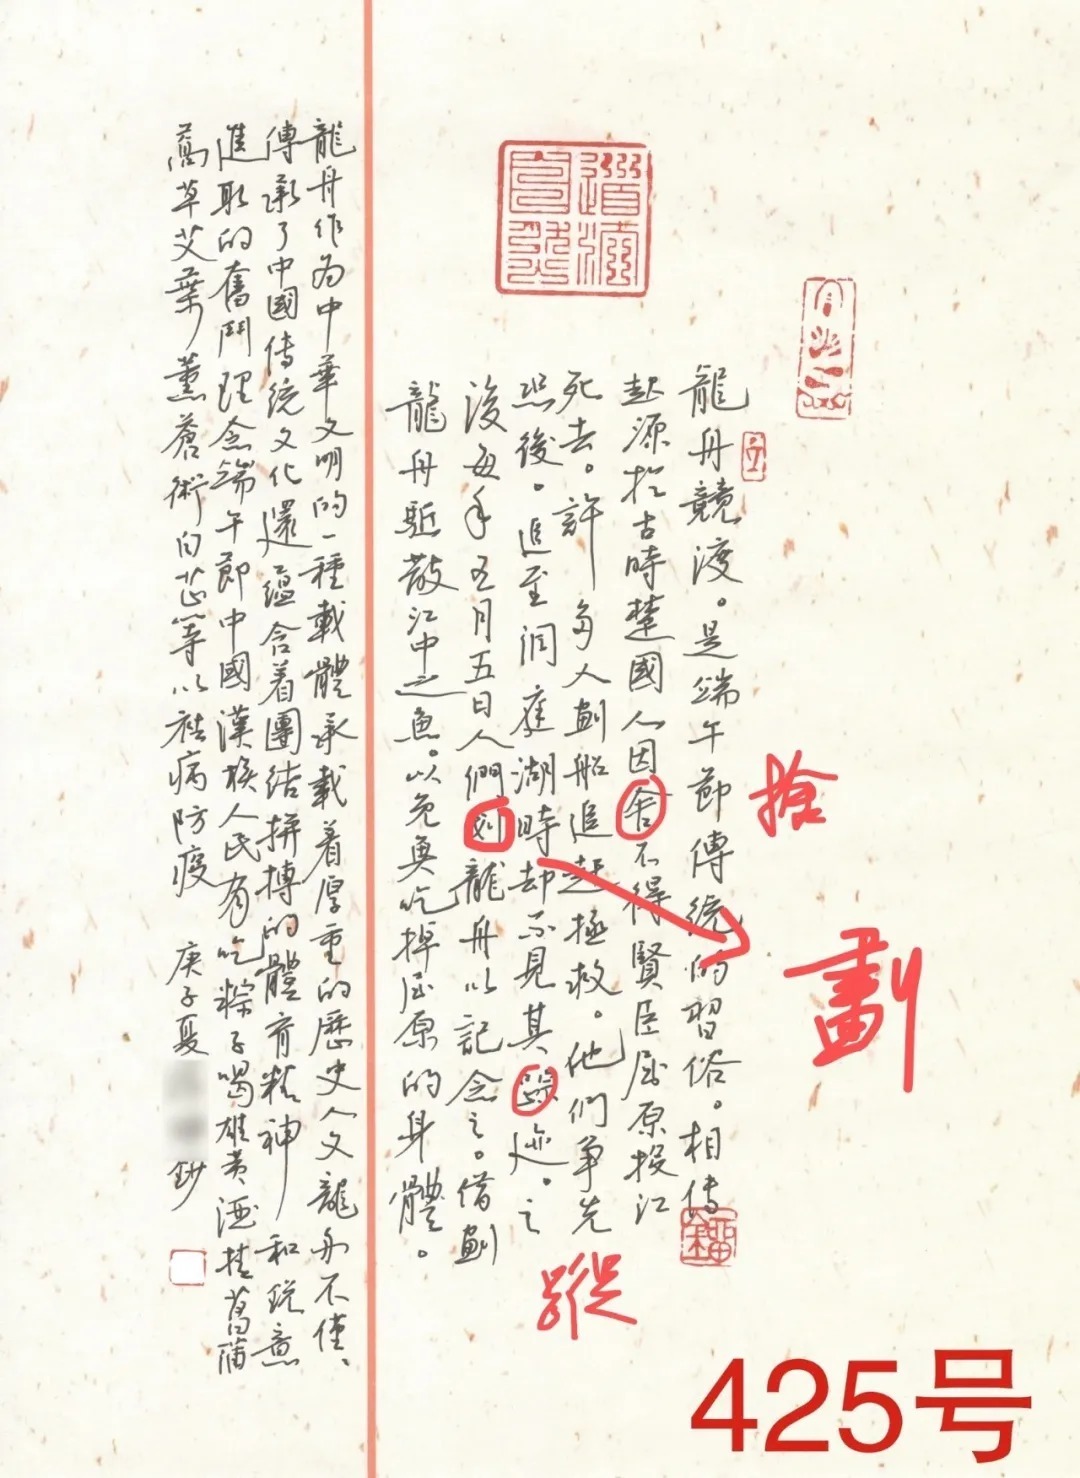 龍舟競渡。是端午節傳統的習俗。相傳
起源於古時楚國人因舍不得賢臣屈原投江
死去。許多人劃船追赶拯救。他們争先
恐後。追至洞庭湖時却不見其踪迹。之
後每年五月五日人們划龍舟以記念之。借劃
龍舟駈散江中之魚。以免魚吃掉屈原的身體。
龍舟作为中華文明的一種載體承載着厚重的歷史人文龍舟不僅、
傳承了中國傳统文化還蕴含着團结拼搏的體育精神和锐意
進取的奮鬥理念端午節中國漢族人民有吃粽子喝雄黄酒挂菖蒲
蒿草艾葉薰蒼術白芷等以祛病防疫 庚子夏 鈔
道法自然
捨
劃
蹤
425号